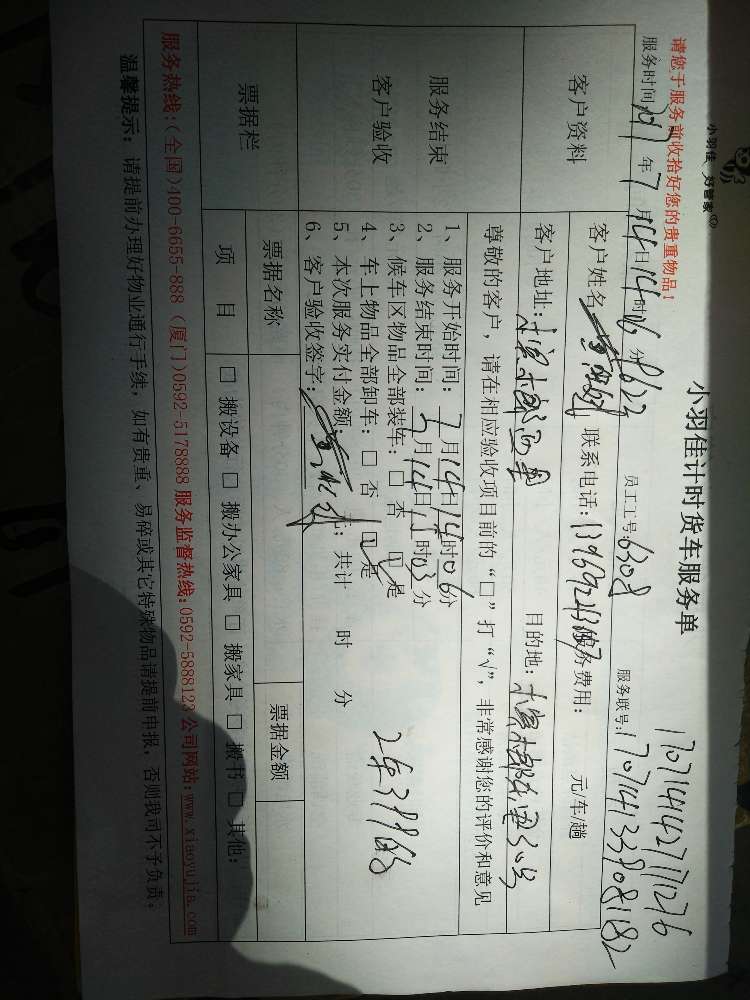 小羽佳 好管家
小羽佳计时货车服务单
请您于服务前收拾好您的贵重物品!
17071414271711276
服务时间: 17 年 7 月 14 日 14 时 06 分 员工工号: 6308 服务联号: 17071413390811182
客户资料
客户姓名 联系电话: 服务费用: 元/车/趟
客户地址: 目的地:
尊敬的客户，请在相应验收项目前的“□”打“√”，非常感谢您的评价和意见
服务结束
客户验收
1、服务开始时间: 7 月 14 日 14 时 06 分
2、服务结束时间: 7 月 14 日 15 时 03 分
3、候车区物品全部装车: □ 否 □ 是
4、车上物品全部卸车: □ 否 □ 是
5、本次服务实付金额: 元; 共计 时 分
6、客户验收签字:
票据栏
票据名称 票据金额
项 目 □ 搬设备 □ 搬办公家具 □ 搬家具 □ 搬书 □ 其他:
服务热线:(全国)400-6655-888 (厦门)0592-5178888 服务监督热线:0592-5888123 公司网站:www.xiaoyujia.com
温馨提示: 请提前办理好物业通行手续, 如有贵重、易碎或其它特殊物品请提前申报, 否则我司不予负责。